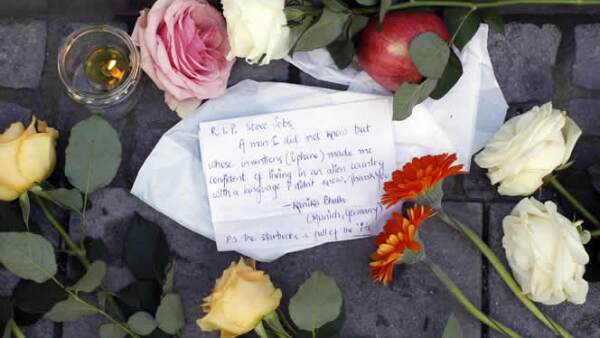 R.I.P. Steve Jobs,
A man I did not know but
whose inventions (Iphone) made me
confident of living in an alien country
with a language I didn't know. Thank you
(Munich, Germany)
P.S. The Starbucks is full of the